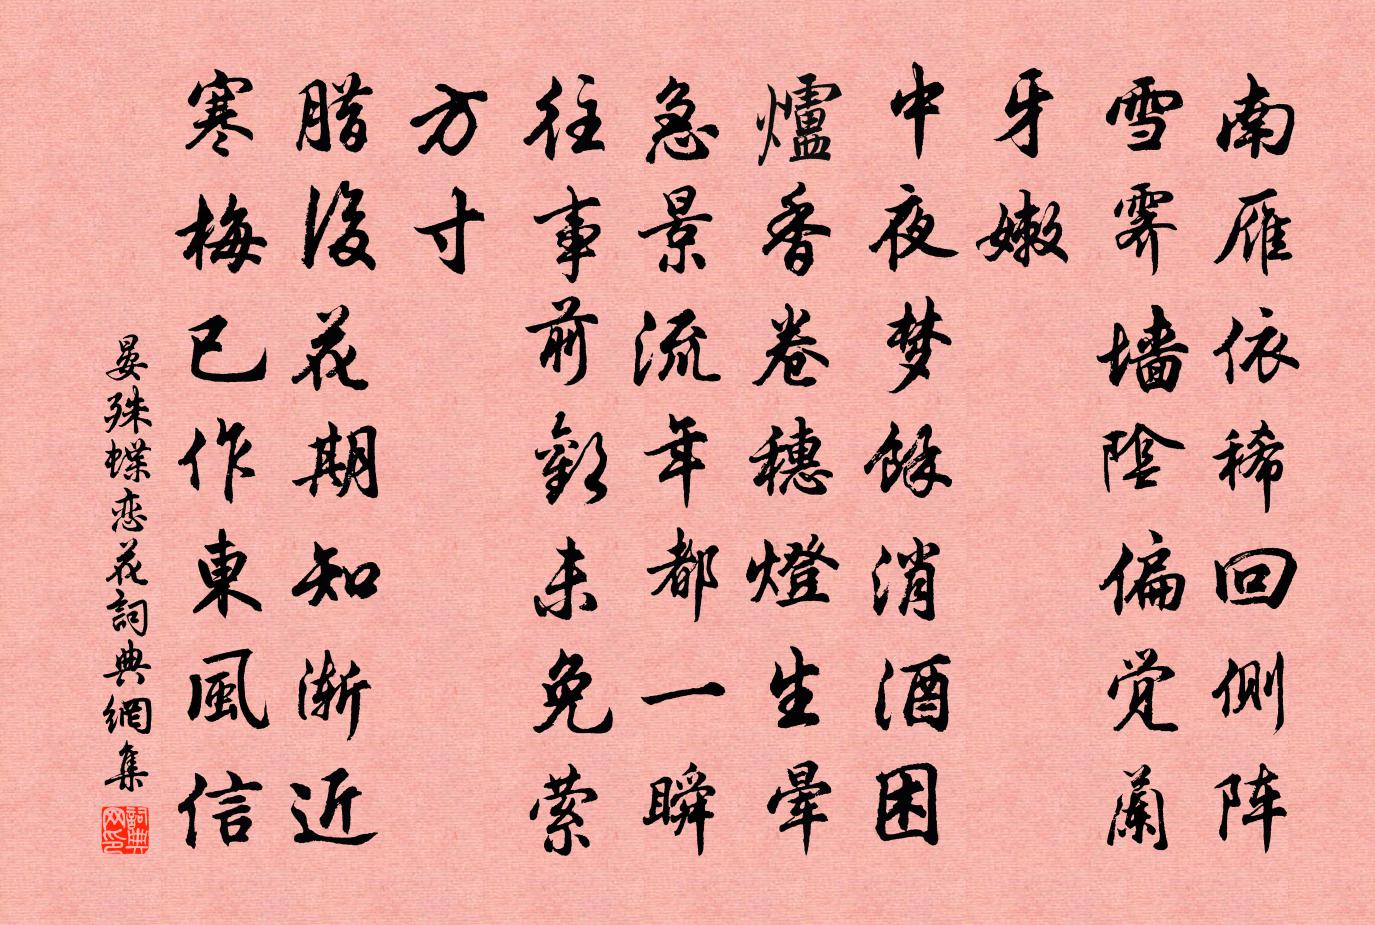 南雁依稀回侧阵
雪霁墙陰偏觉蘭
牙嫩
中夜梦餘消酒困
爐香卷穗燈生晕
急景流年都一瞬
往事前歡未免萦
方寸
腊後花期知渐近
寒梅已作東風信
晏殊蝶恋花詞典網集
詞典网印